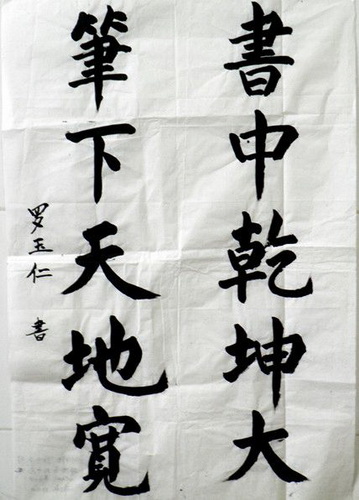 書中乾坤大
筆下天地寬
罗玉仁 書